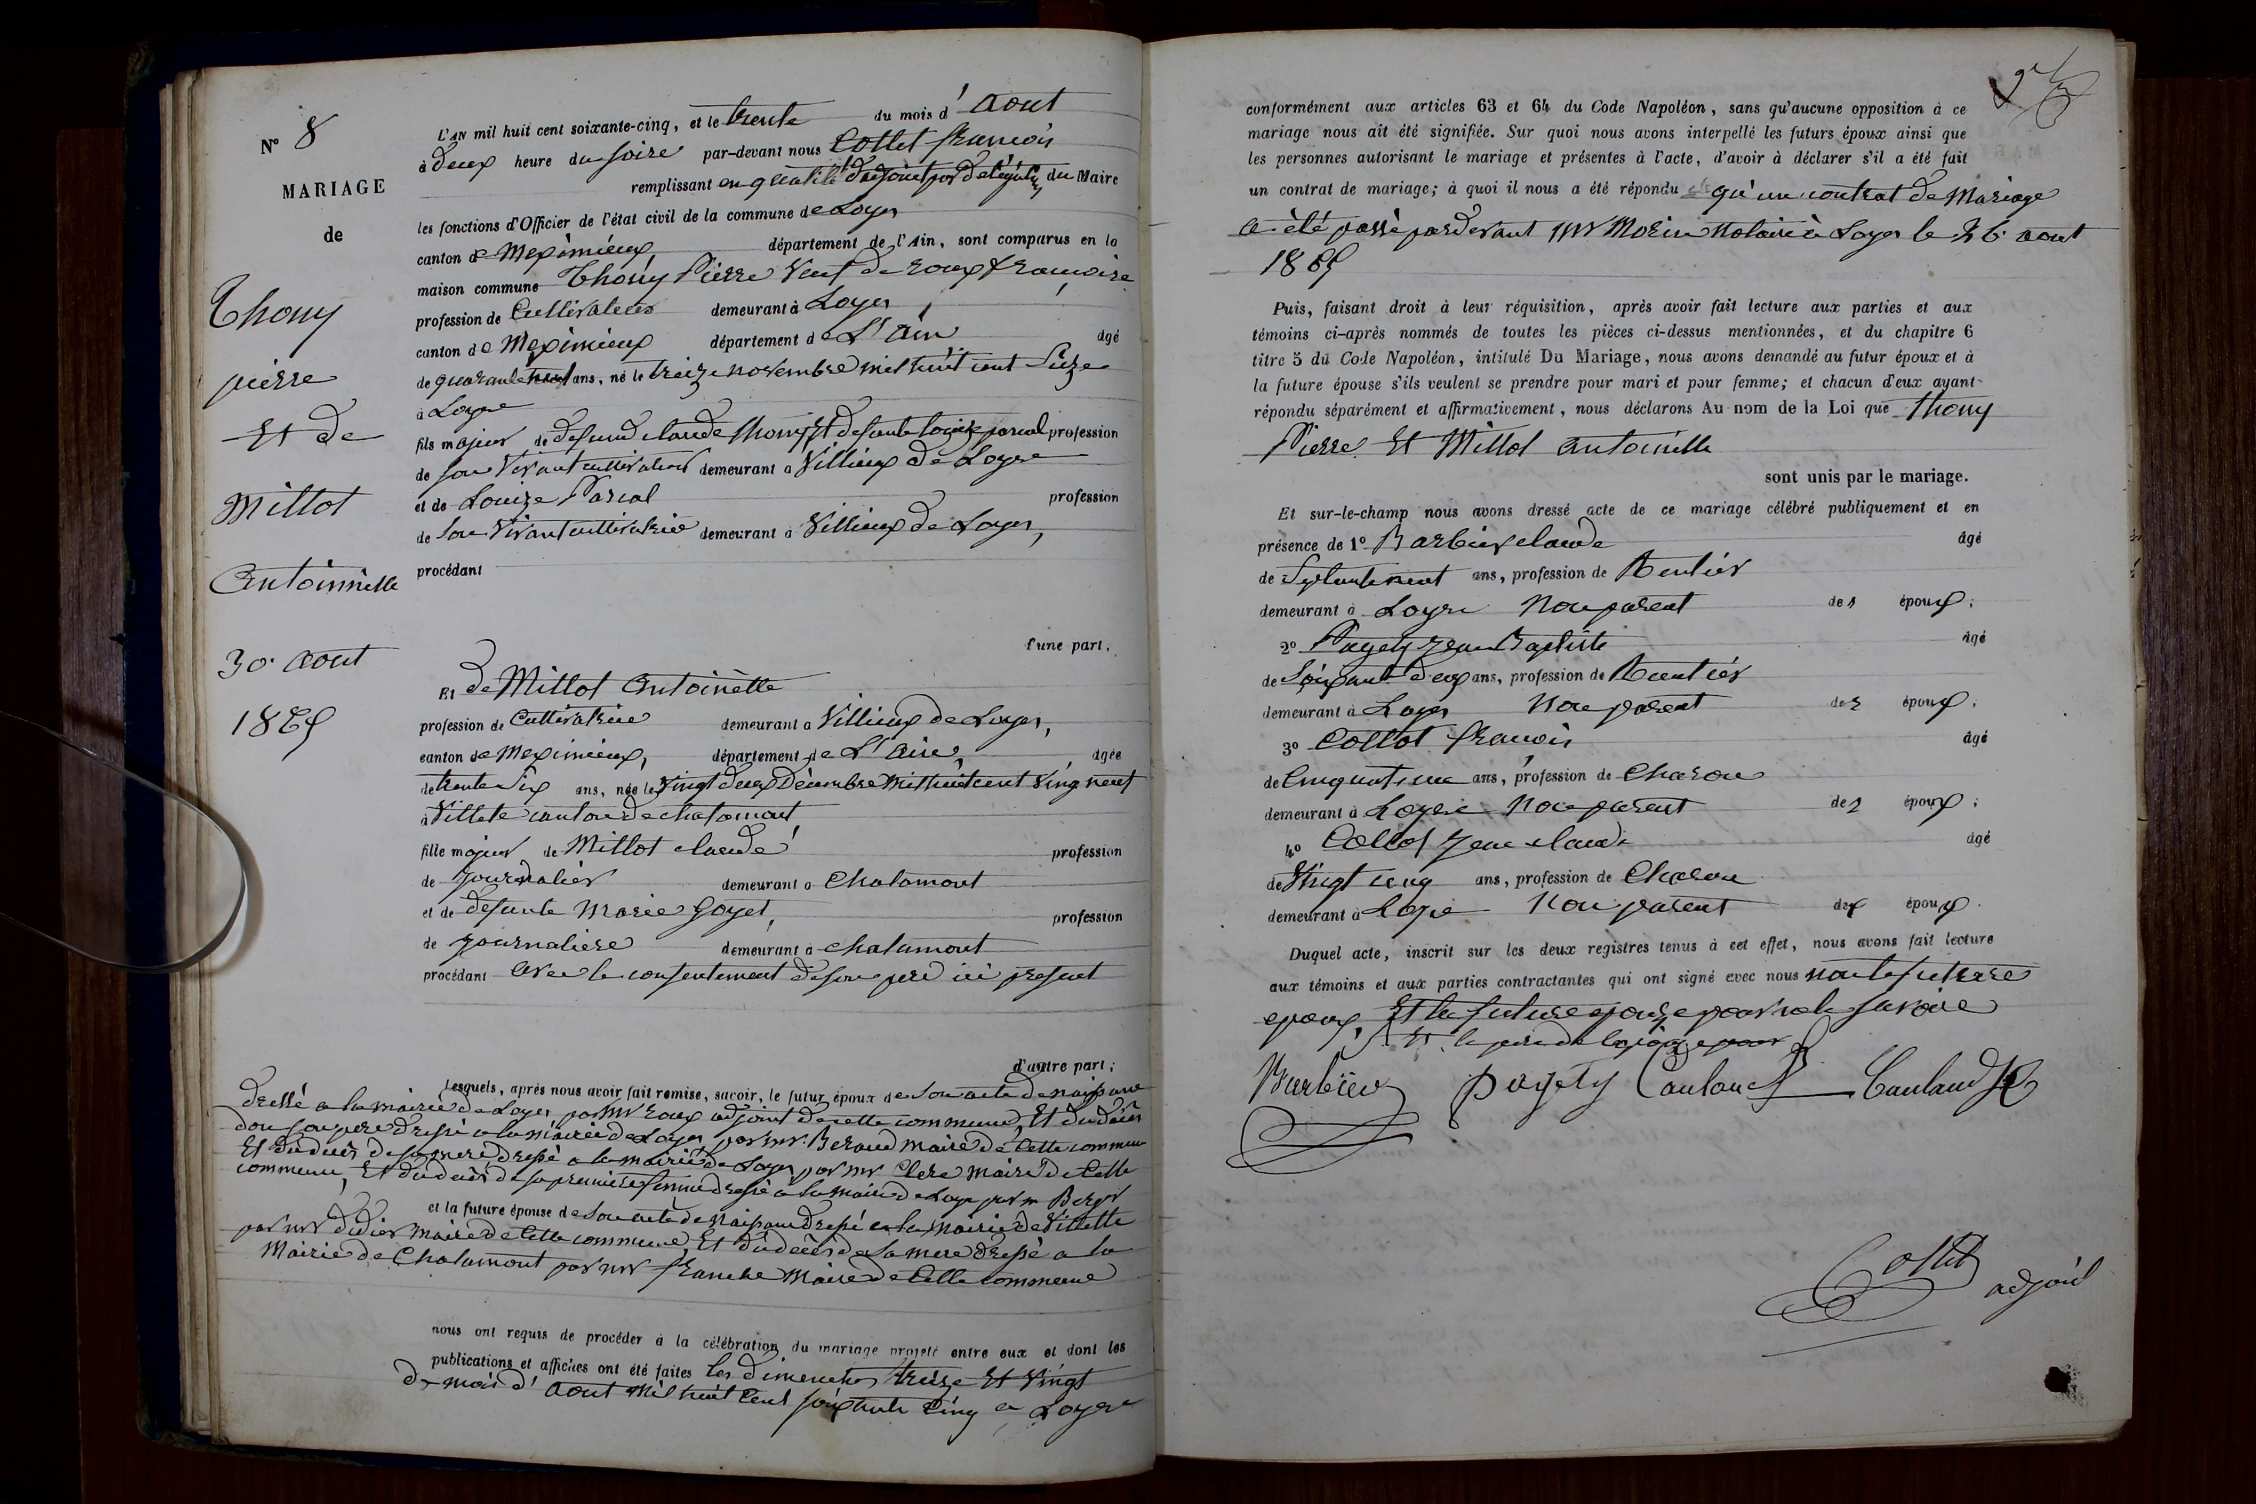 N° 8
MARIAGE
de
Thony
pierre
Et de
Millot
Antoinnette
30 Aout
1865
L'AN mil huit cent soixante-cinq, et le trente du mois d' Aout
à deux heure du soire par-devant nous Collet francois
remplissant en qualité d'adjoint par délégation du Maire
les fonctions d'Officier de l'état civil de la commune de Loyes
canton de Meximieux département de l'Ain, sont comparus en la
maison commune Thony Pierre Veuf de roux francoise
profession de Cultivateur demeurant à Loyes,
canton de Meximieux département de L'Ain âgé
de quarante neuf ans, né le treize novembre mil huit cent Sèze
à Loyes
fils majeur de defund claude thony Et defunte Louize parcal profession
de son Vivant cultivateur demeurant à Villieux De Loyes
et de Louize Parcal profession
de Son Vivant cultivatrice demeurant à Villieux de Loyes,
procédant
d'une part,
Et de Millot Antoinètte
profession de Cultivatrice demeurant à Villieux de Loyes,
canton de Meximieux, département de L'Ain, âgée
de trente Six ans, née le Vingt deux Décembre Mil huit cent Vingt neuf
à Villete canton de chalamont
fille majeur de Millot claude profession
de journalier demeurant à Chalamont
et de defunte Marie Goyet, profession
de journaliere demeurant à chalamont
procédant avec le consentement de son pere ici present
d'autre part;
Lesquels, après nous avoir fait remise, savoir, le futur époux de Son acte de naissance
dressé a la mairie de Loyes par Mr roux adjoint de cette commune, Et du décès
don son pere dressé a la mairie de Loyes par mr. Beraud maire de Cette commune
Et du décès de sa mere dressé a la mairie de Loyes par mr Clerc Maire de Cette
commune, Et du décès de sa premiere femme dressé a la Mairie de Loyes par m Berger
et la future épouse de Son acte de Naissance dressé a la Mairie de Villette
par mr didier Maire de Cette commune, Et du décès de la mere dressé a la
Mairie de Chalamont par mr franche Maire de Cette commune
nous ont requis de procéder à la célébration du mariage projeté entre eux et dont les
publications et affiches ont été faites les dimenches treize Et Vingt
du mois d' Aout Mil huit Cent soixante Cinq a Loyes
conformément aux articles 63 et 64 du Code Napoléon, sans qu'aucune opposition à ce
mariage nous ait été signifiée. Sur quoi nous avons interpellé les futurs époux ainsi que
les personnes autorisant le mariage et présentes à l'acte, d'avoir à déclarer s'il a été fait
un contrat de mariage; à quoi il nous a été répondu qu'un contrat de Mariage
a été passé pardevant Mr Morin Notaire à Loyes le 26 aout
1865
Puis, faisant droit à leur réquisition, après avoir fait lecture aux parties et aux
témoins ci-après nommés de toutes les pièces ci-dessus mentionnées, et du chapitre 6
titre 5 du Code Napoléon, intitulé Du Mariage, nous avons demandé au futur époux et à
la future épouse s'ils veulent se prendre pour mari et pour femme; et chacun d'eux ayant
répondu séparément et affirmativement, nous déclarons Au nom de la Loi que thony
Pierre Et Millot Antoinètte
sont unis par le mariage.
Et sur-le-champ nous avons dressé acte de ce mariage célébré publiquement et en
présence de 1° Barbier claude âgé
de Septante neuf ans, profession de Rentier
demeurant à Loyes Non parent des époux;
2° Pagety Jean Baptiste âgé
de Soixante deux ans, profession de Rentier
demeurant à Loyes Non parent des époux;
3° Collet francois âgé
de Cinquante un ans, profession de Charon
demeurant à Loyes Non parent des époux;
4° Collet Jean claude âgé
de Vingt cinq ans, profession de Charon
demeurant à Loyes Non parent des époux.
Duquel acte, inscrit sur les deux registres tenus à cet effet, nous avons fait lecture
aux témoins et aux parties contractantes qui ont signé avec nous non le future
epoux, Et la future epouse pour ne le savoire
Et le pere de
Barbier Pagety
Collet
adjoint